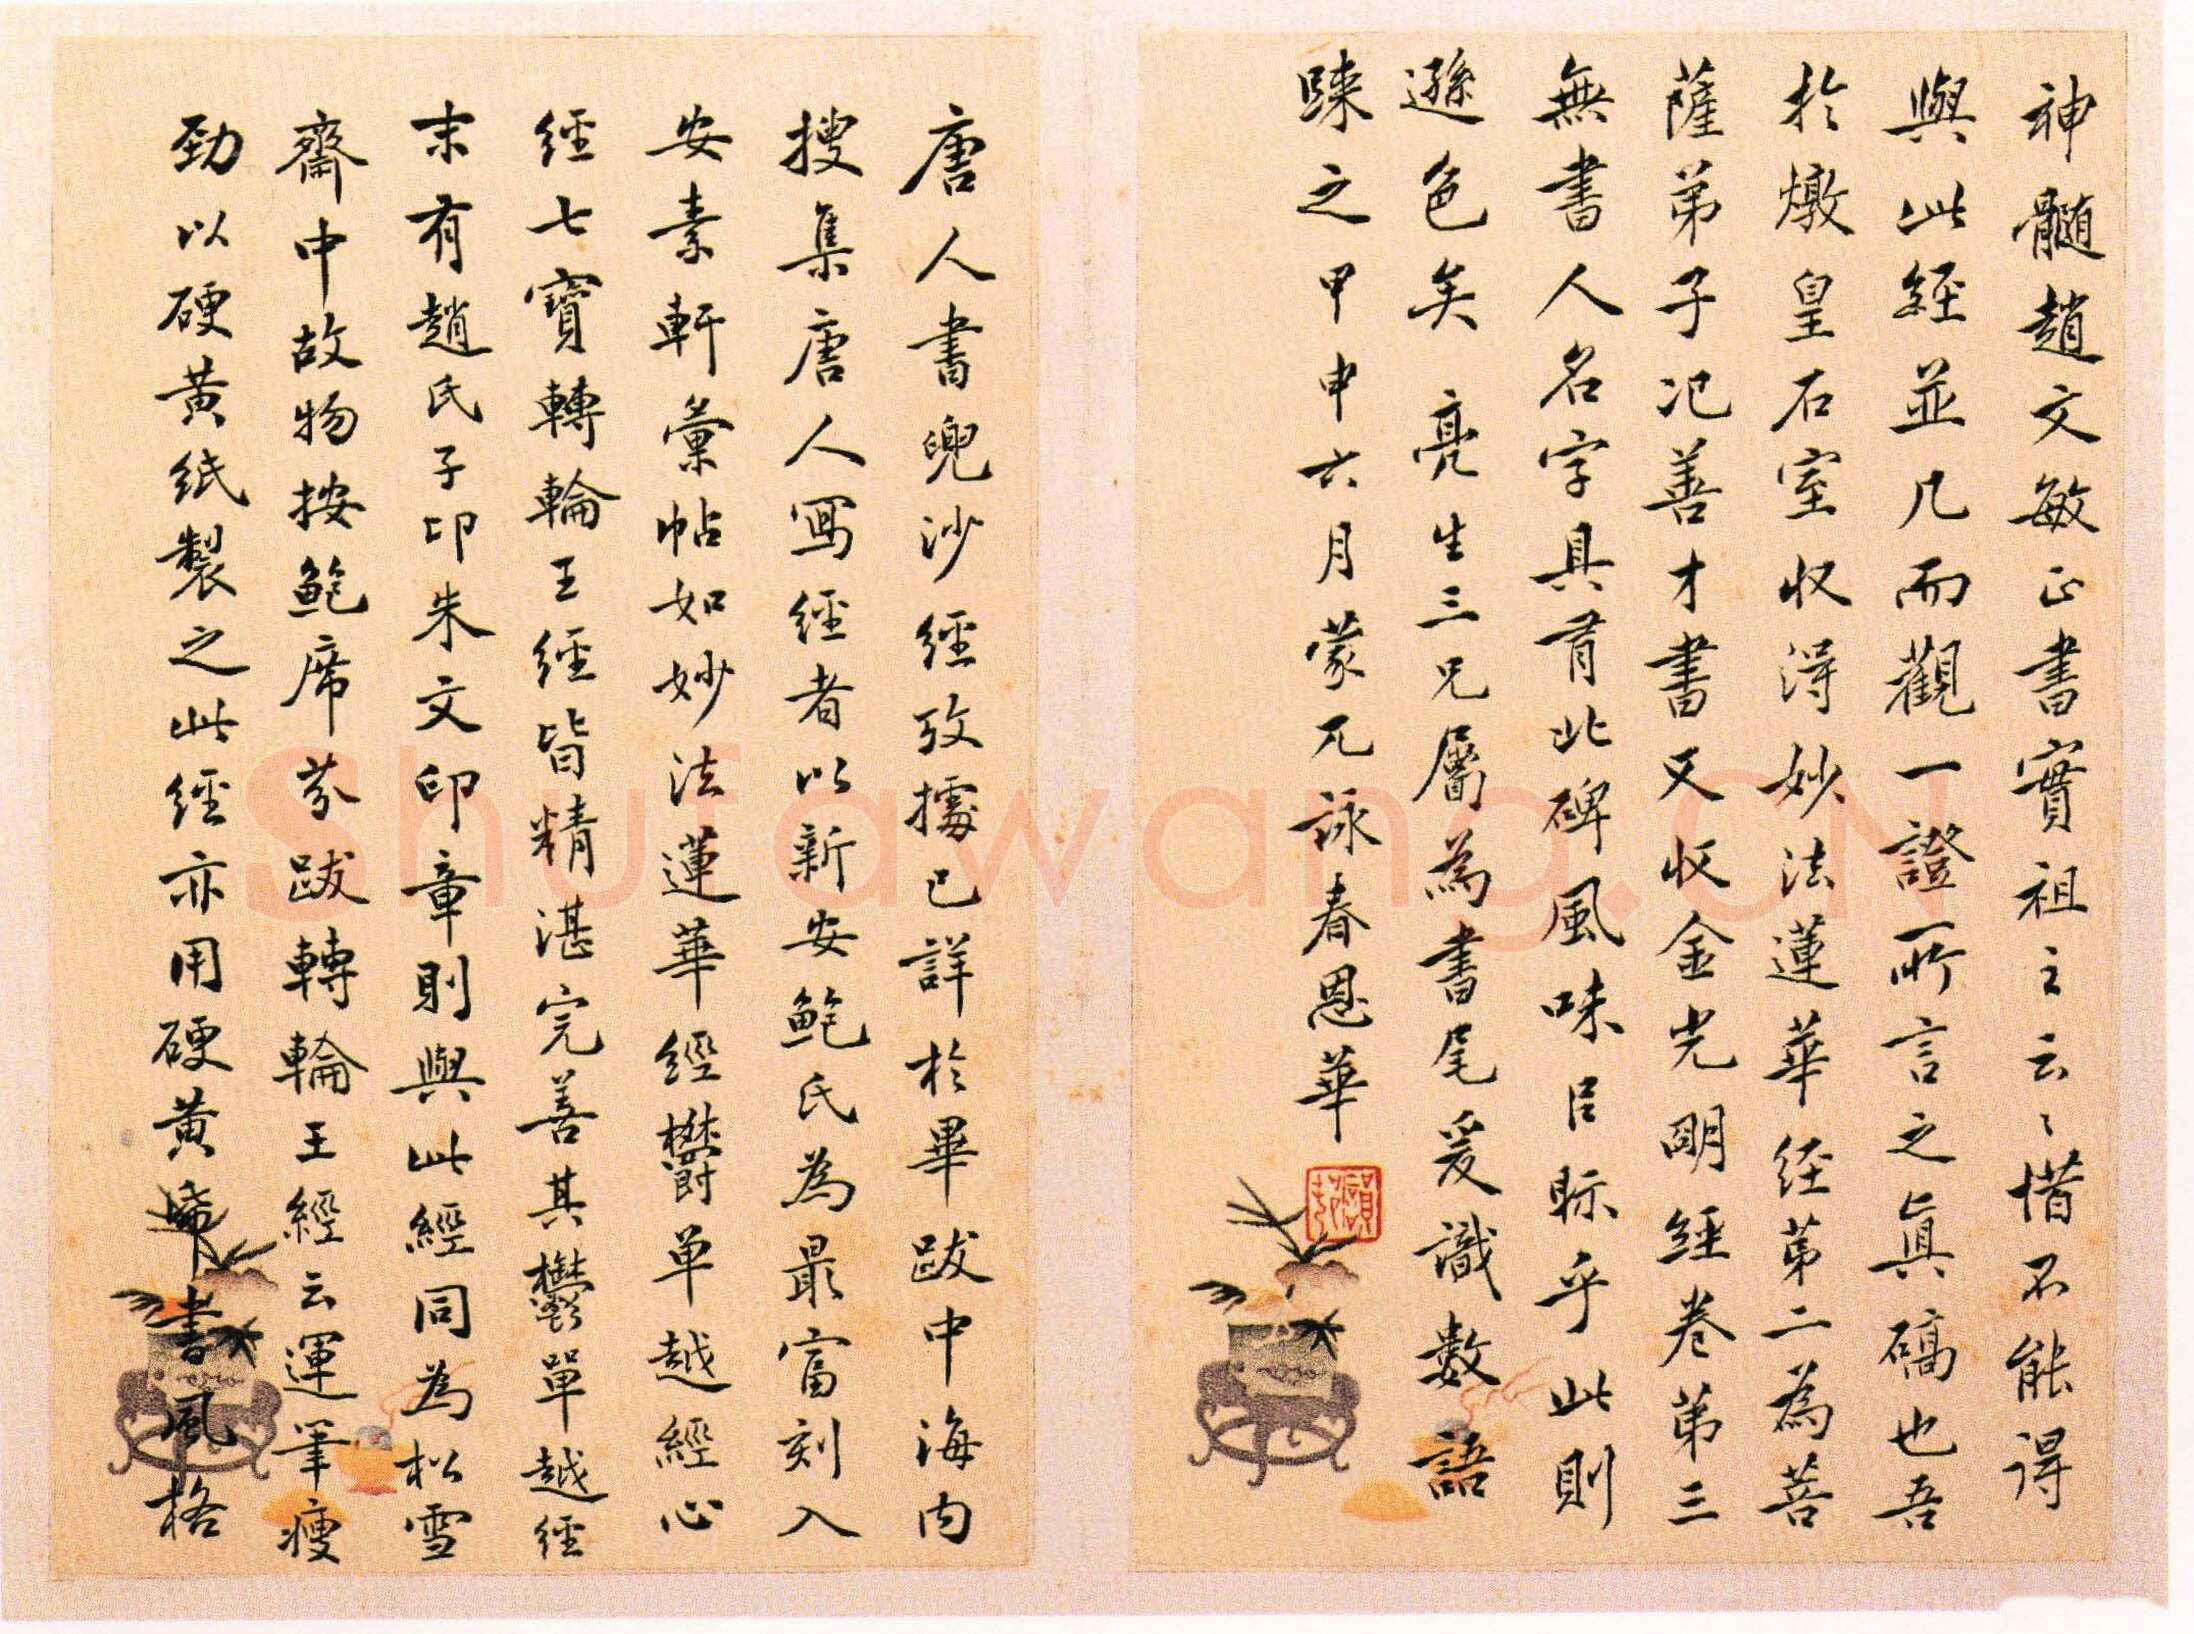 唐人書兜沙經攷據已詳於畢跋中海内
搜集唐人寫經者以新安鮑氏為最富刻入
安素軒彙帖如妙法蓮華經欝單越經心
經七寶轉輪王經皆精湛完善其鬱單越經
末有趙氏子印朱文印章則與此經同為松雪
齋中故物按鮑席芬跋轉輪王經云運筆瘦
勁以硬黃紙製之此經亦用硬黃帋書風格
神髓趙文敏正書實祖之云〻惜不能得
與此經並几而觀一證所言之真碻也吾
於燉皇石室收得妙法蓮華経苐二為菩
薩弟子氾善才書又收金光明經卷苐三
無書人名字具有此碑風味㠯眎乎此則
遜色矣 亮生三兄屬為書尾爰識數語
踈之甲申六月蒙兀詠春恩華
Shufawang.CN